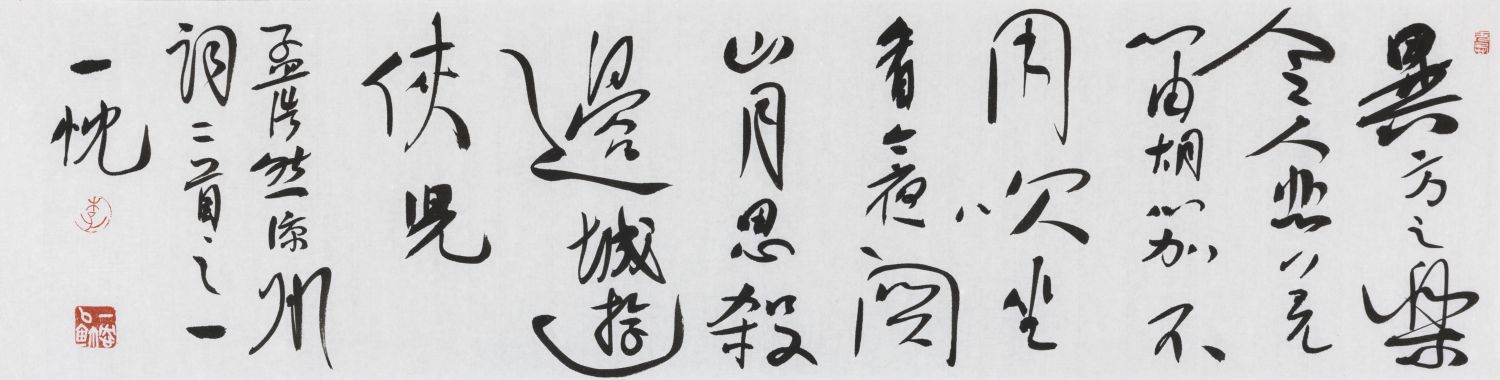 異方之樂
令人悲羌
笛胡笳不
用吹坐
看今夜関
山月思殺
邊城遊
俠児
孟浩然涼州
詞二首之一
一忱
李